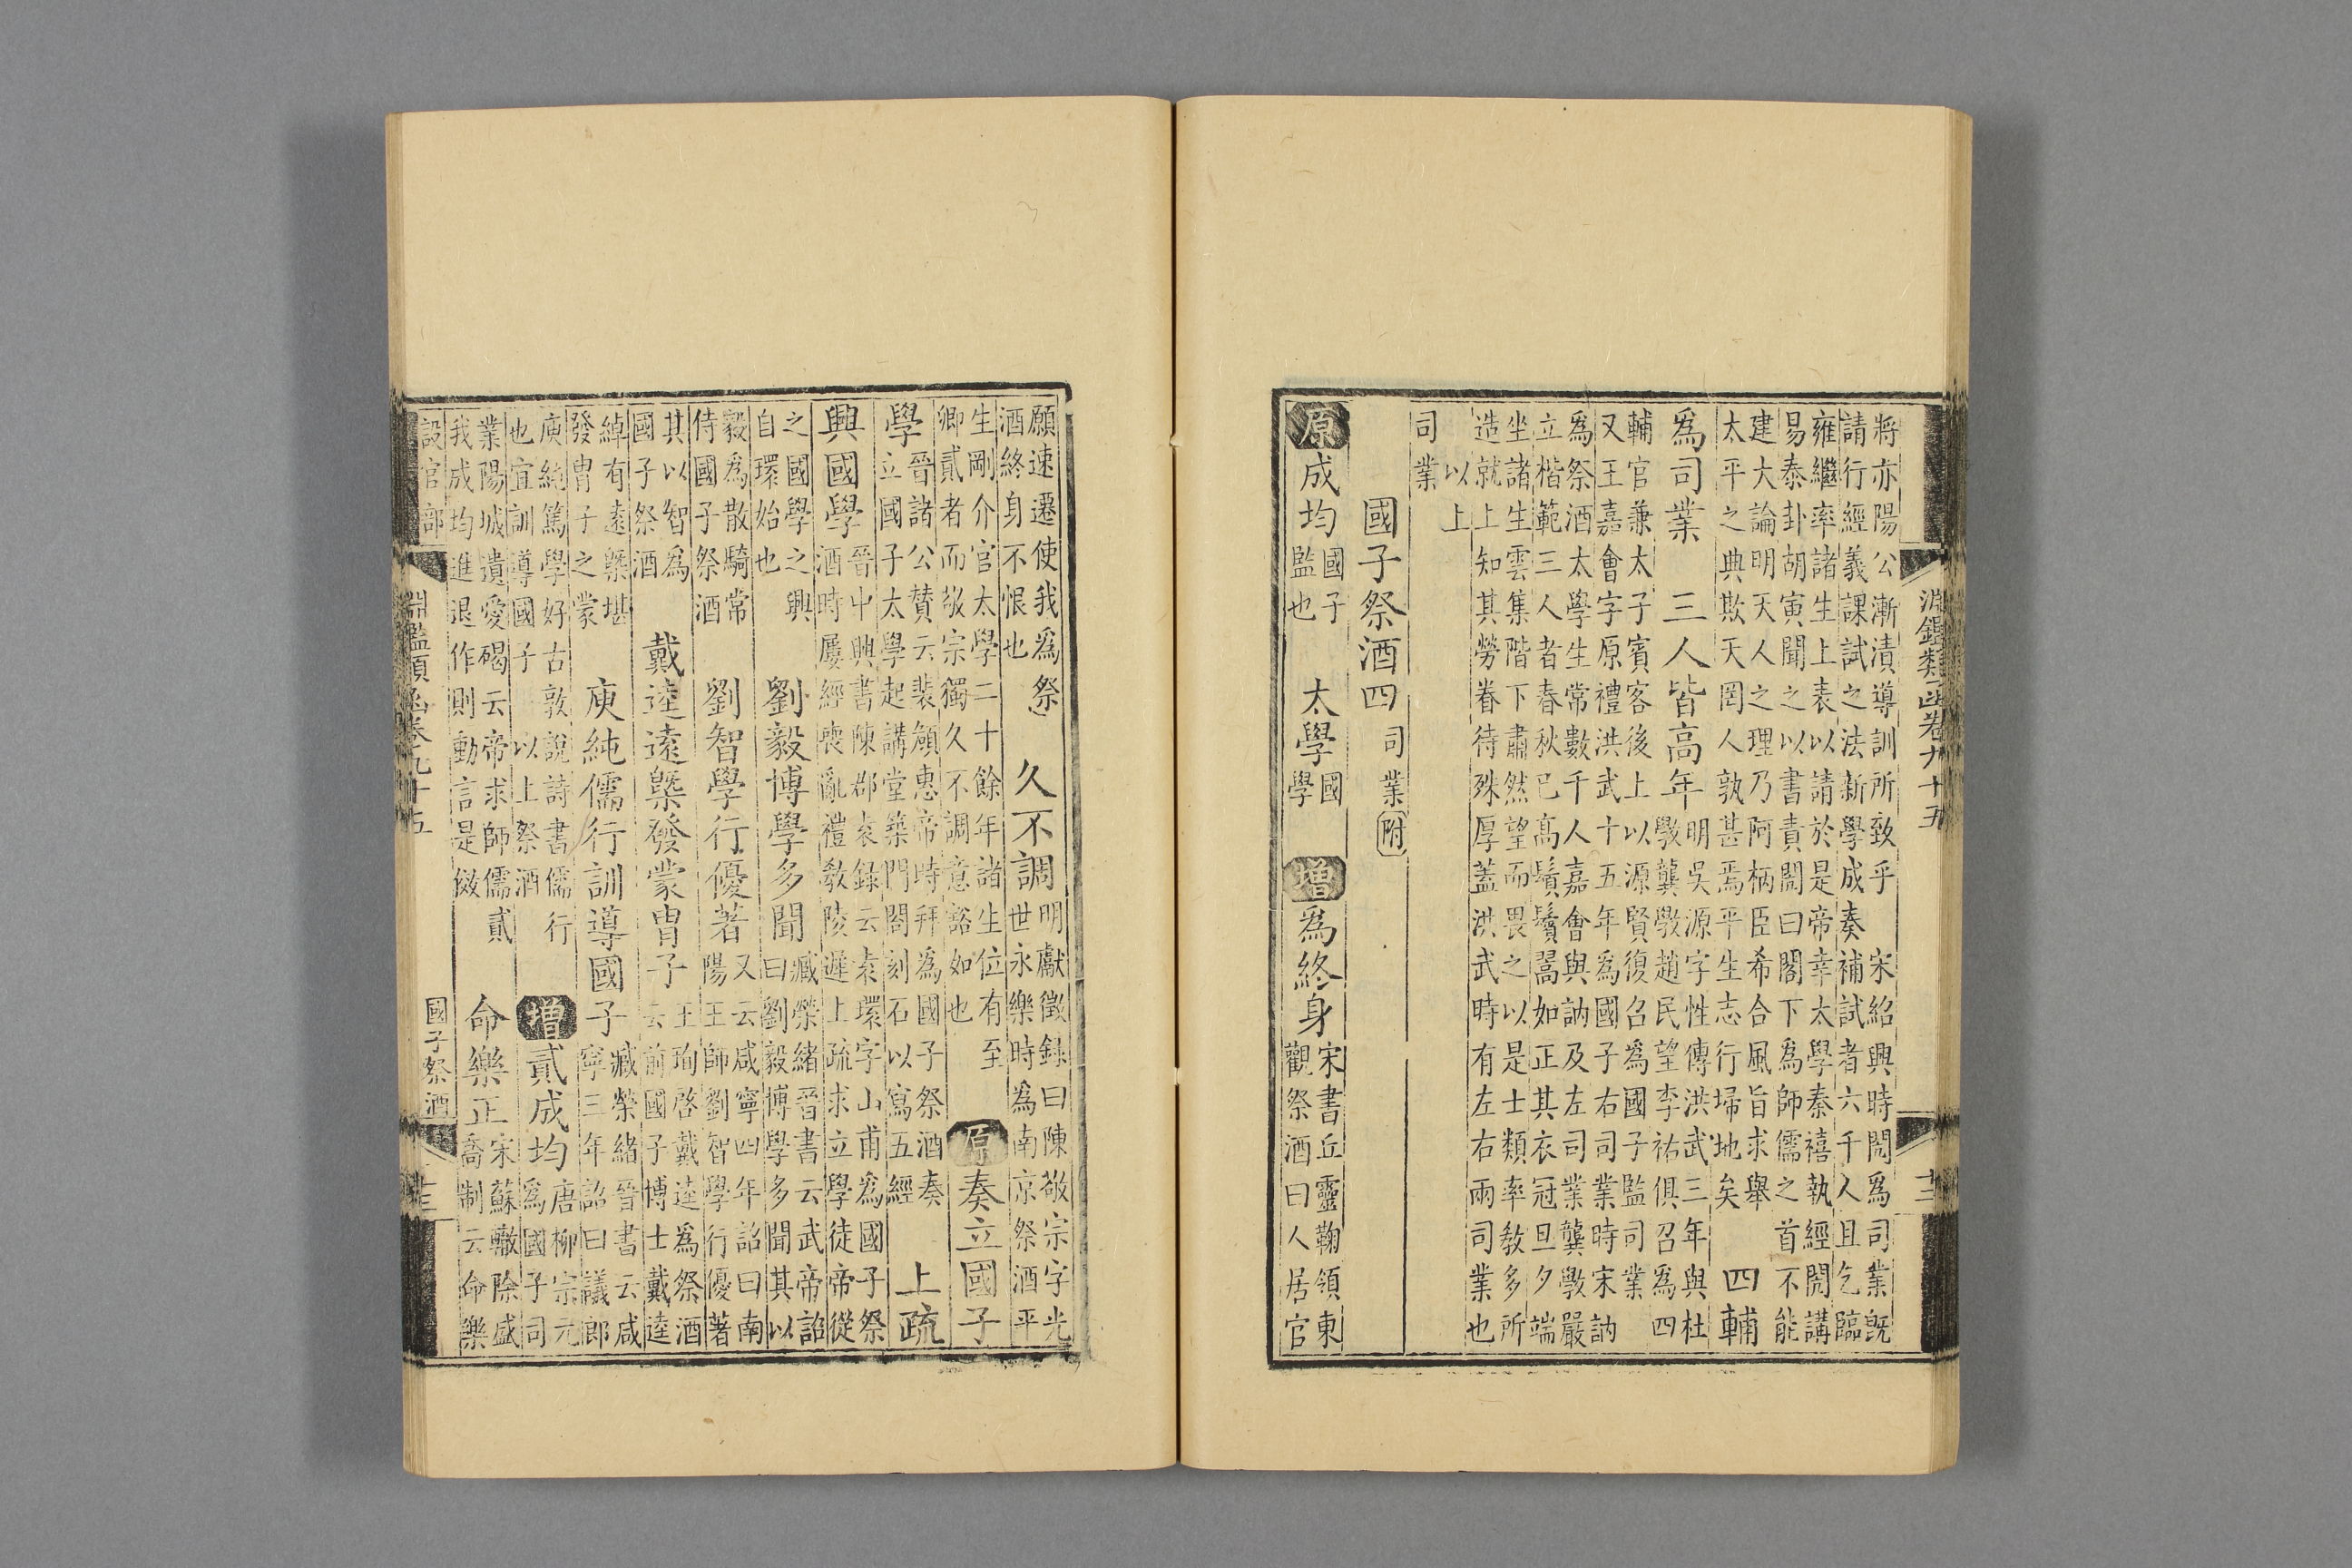 淵鑑類函卷九十五 十二
將亦陽公漸漬導訓所致乎 宋紹興時閌爲司業旣
請行經義課試之法新學成奏補試者六千人且乞臨
雍繼率諸生上表以請於是帝幸太學秦禧執經閌講
易泰卦胡寅聞之以書責閌曰閣下爲師儒之首不能
建大論明天人之理乃阿柄臣希合風旨求舉
太平之典欺天罔人孰甚焉平生志行埽地矣 四輔
爲司業 三人皆高年 明吳源字性傳洪武三年與杜
斆龔斆趙民望李祐俱召爲四
輔官兼太子賓客後上以源賢復召爲國子監司業
又王嘉會字原禮洪武十五年爲國子右司業時宋訥
爲祭酒太學生常數千人嘉會與訥及左司業龔斆嚴
立楷範三人者春秋已高鬚鬢暠如正其衣冠旦夕端
坐諸生雲集階下肅然望而畏之以是士類率敎多所
造就上知其勞眷待殊厚蓋洪武時有左右兩司業也
以上
司業
國子祭酒四 司業附
原 成均 國子監也 太學 國學 增 爲終身 宋書丘靈鞠領東
觀祭酒曰人居官
願速遷使我爲祭
酒終身不恨也 久不調 明獻徵錄曰陳敬宗字光
世永樂時爲南京祭酒平
生剛介官太學二十餘年諸生位有至
卿貳者而敬宗獨久不調意豁如也 原 奏立國子
學 晉諸公贊云裴頠惠帝時拜爲國子祭酒奏
立國子太學起講堂築門闕刻石以寫五經 上疏
興國學 晉中興書陳郡袁錄云袁環字山甫爲國子祭
酒時屢經喪亂禮敎陵遲上疏求立學徒帝從
之國學之興
自環始也 劉毅博學多聞 臧榮緒晉書云武帝詔
曰劉毅博學多聞其以
毅爲散騎常
侍國子祭酒 劉智學行優著 又云咸寧四年詔曰南
陽王師劉智學行優著
其以智爲
國子祭酒 戴逵遠槩發蒙胄子 王珣啓戴逵爲祭酒
云前國子博士戴逵
綽有遠槩堪
發胄子之蒙 庾純儒行訓導國子 臧榮緒晉書云咸
寧三年詔曰議郎
庾純篤學好古敦說詩書儒行
也宜訓導國子 以上祭酒 增 貳成均 唐柳宗元
爲國子司
業陽城遺愛碣云帝求師儒貳
我成均進退作則動言是儆 命樂正 宋蘇轍除盛
喬制云命樂
設官部 淵鑑類函卷九十五 國子祭酒 十三